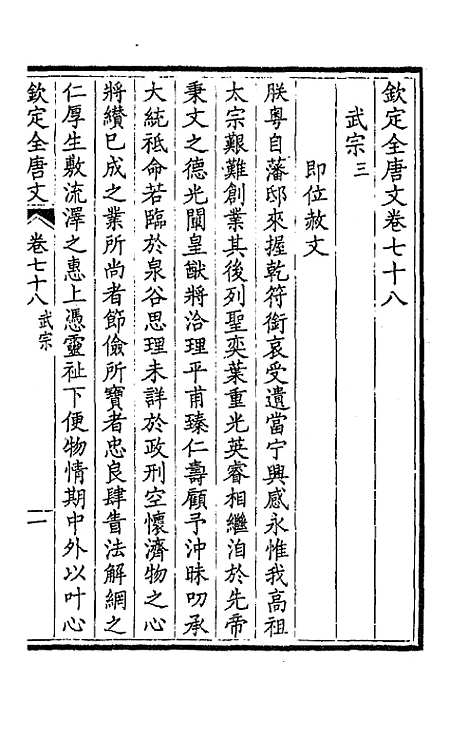 欽定全唐文卷七十八
武宗三
即位赦文
朕粤自藩邸來握乾符銜哀受遺當宁興感永惟我高祖
太宗艱難創業其後列聖奕葉重光英睿相繼洎於先帝
秉文之德光闡皇猷將洽理平甫臻仁壽顧予沖昧叨承
大統祗命若臨於泉谷思理未詳於政刑空懷濟物之心
將纘已成之業所尚者節儉所寶者忠良肆眚法解網之
仁厚生敷流澤之惠上憑靈祉下便物情期中外以叶心
欽定全唐文
卷七十八武宗
一